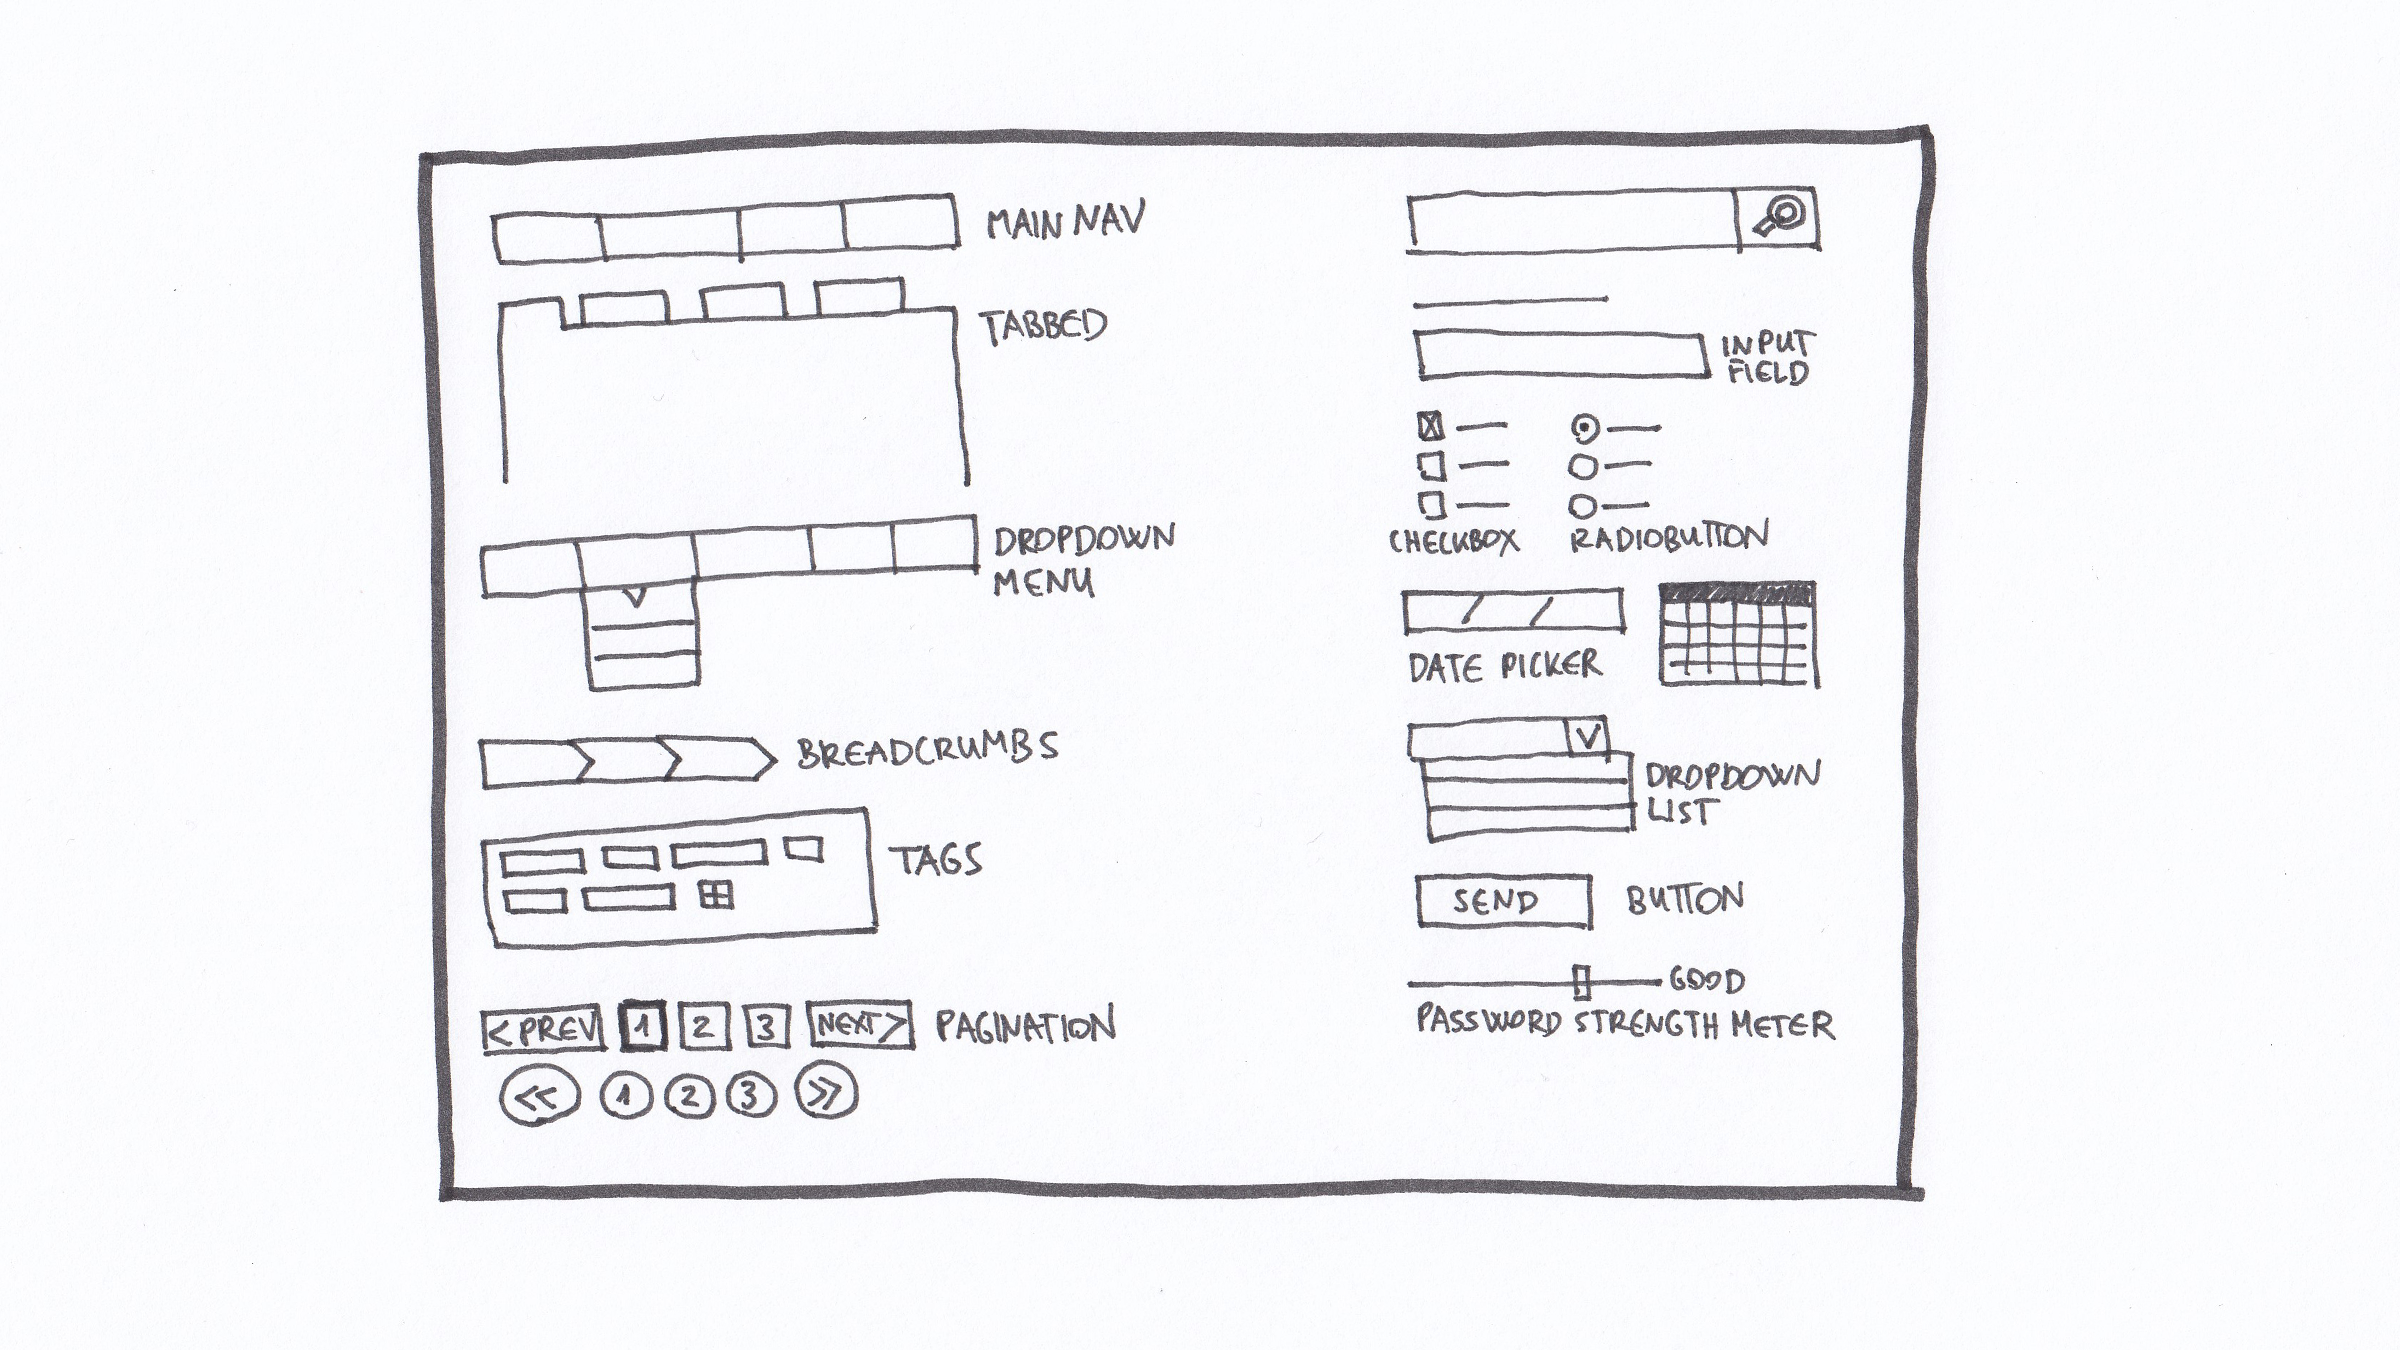 MAIN NAV
TABBED
DROPDOWN
MENU
BREADCRUMBS
TAGS
< PREV 1 2 3 NEXT > PAGINATION
<< 1 2 3 >>
INPUT
FIELD
CHECKBOX RADIOBUTTON
DATE PICKER
DROPDOWN
LIST
SEND BUTTON
GOOD
PASSWORD STRENGTH METER